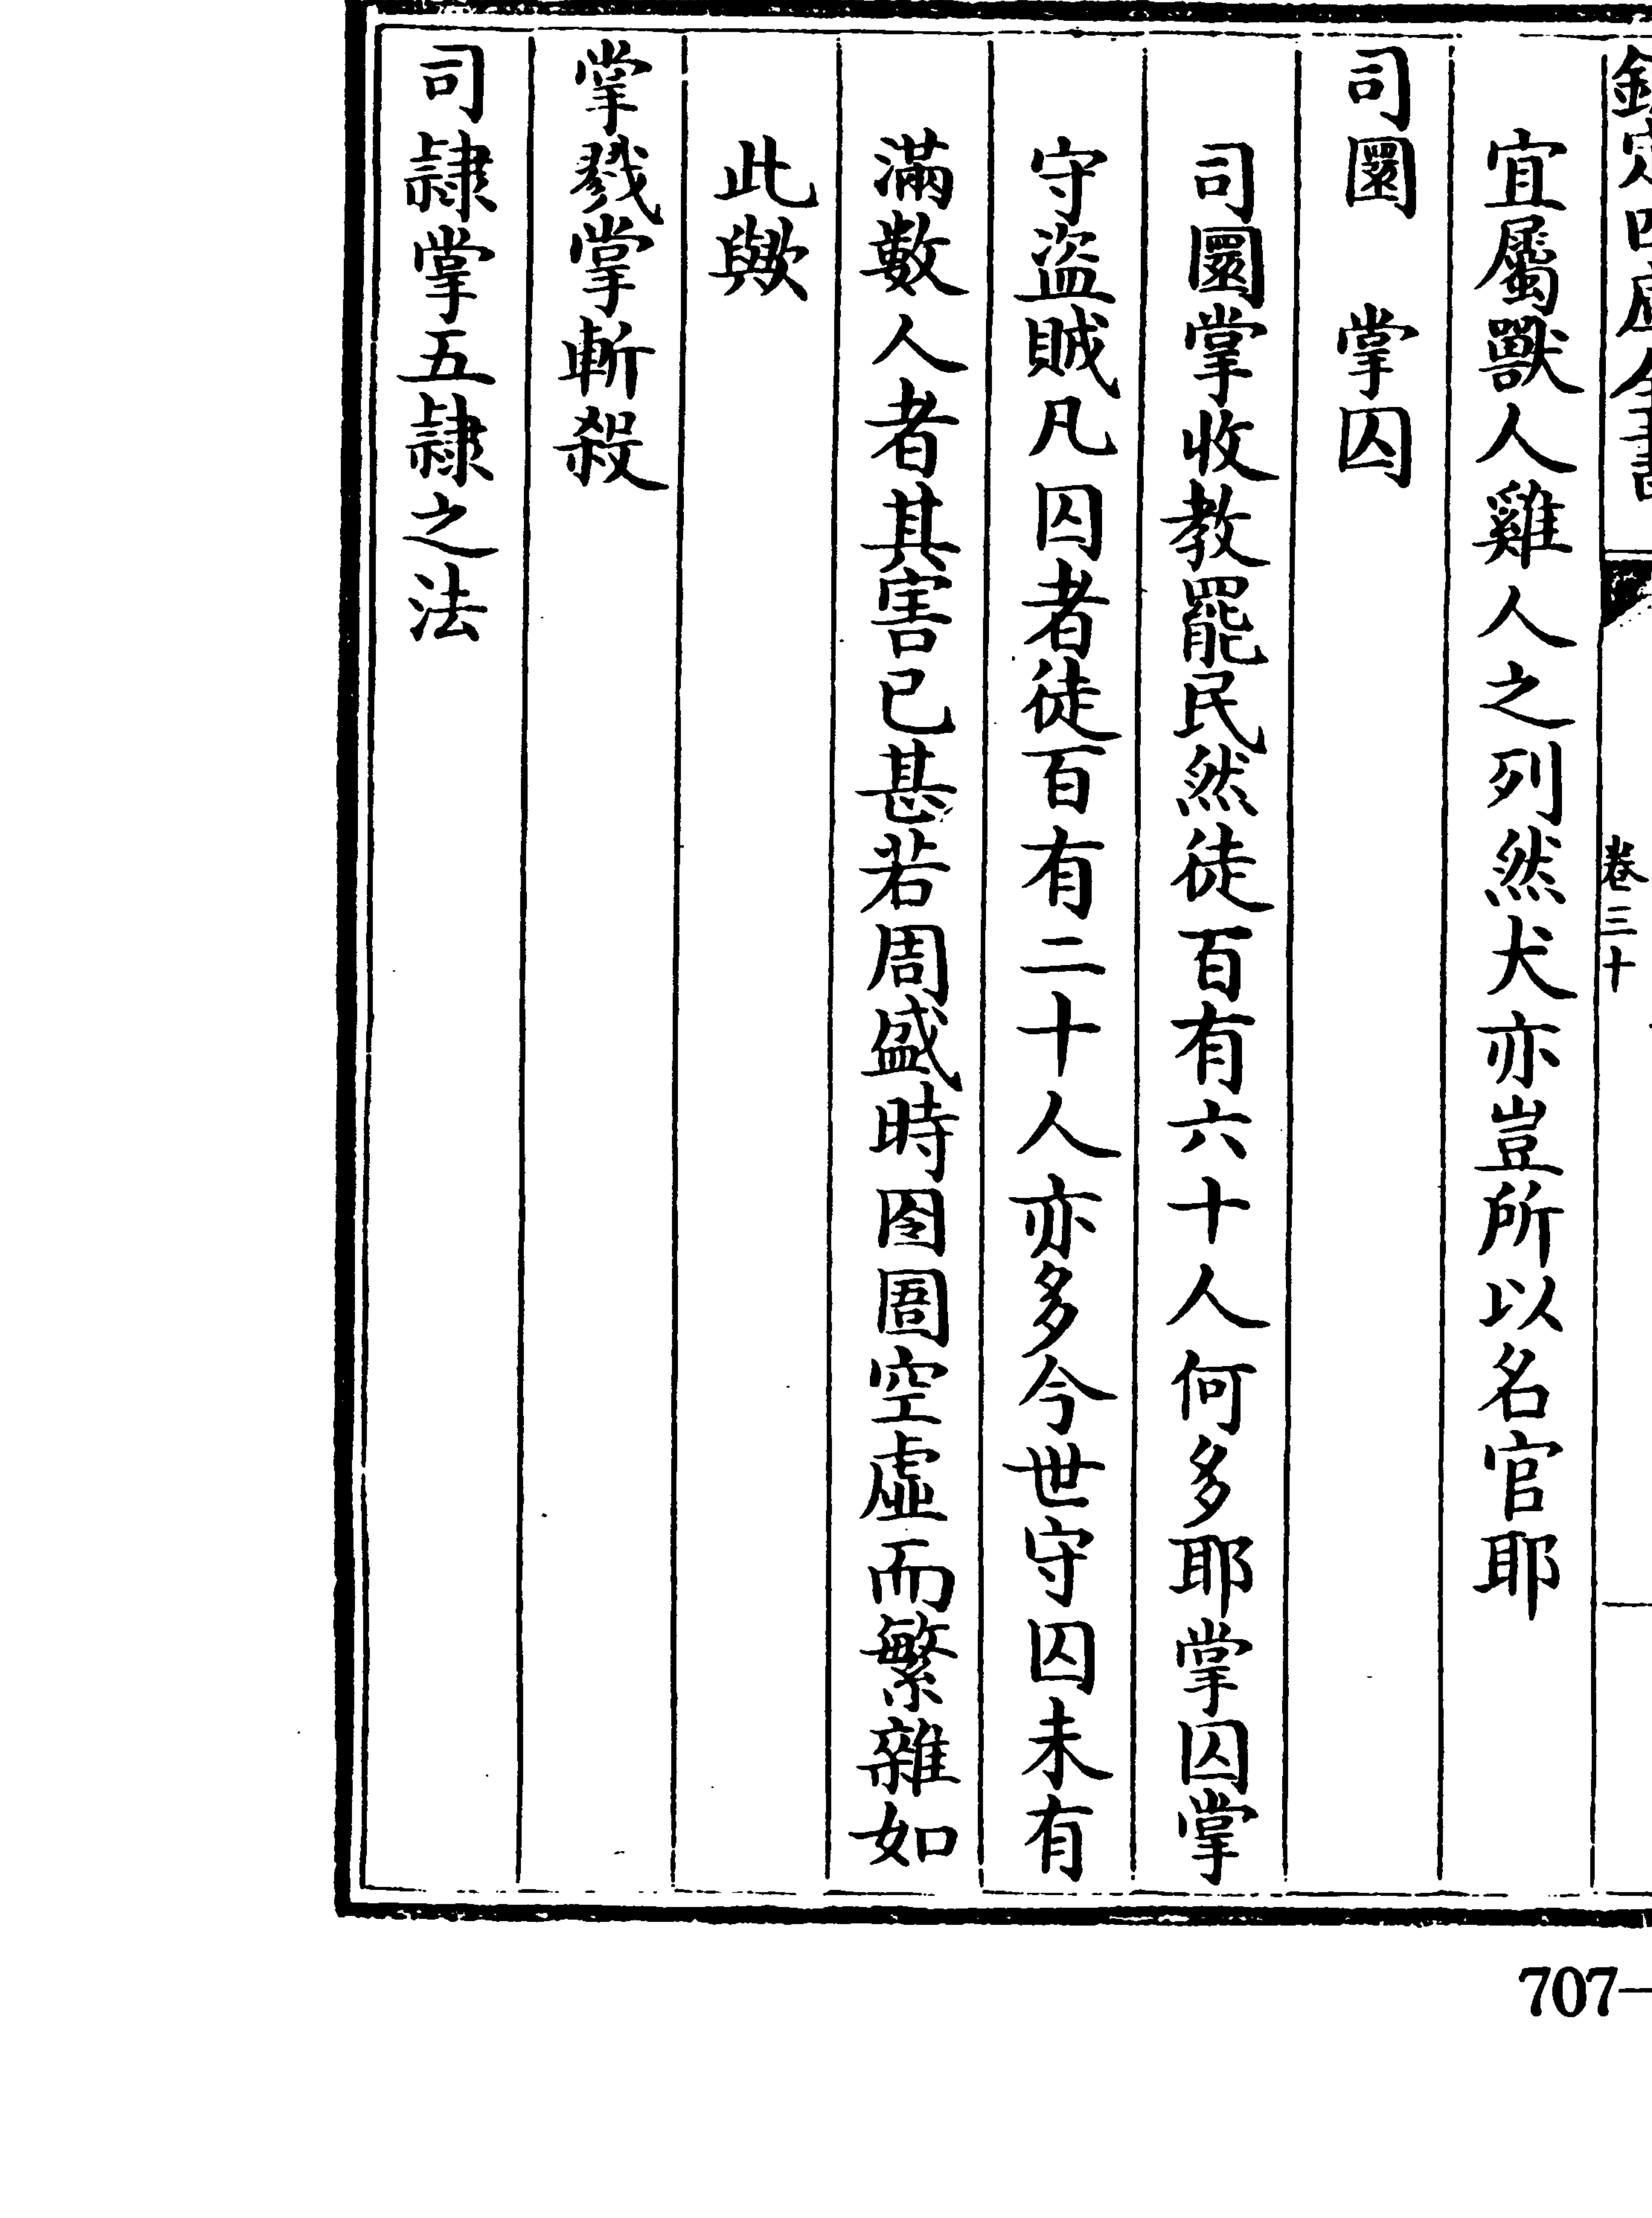 欽定四庫全書
卷三十
宜屬獸人雞人之列然犬亦豈所以名官耶
司圜　掌囚
司圜掌收教罷民然徒百有六十人何多耶掌囚掌
守盜賊凡囚者徒百有二十人亦多今世守囚未有
滿數人者其害已甚若周盛時囹圄空虛而繁雜如
此歟
掌戮掌斬殺
司隷掌五隷之法
707—